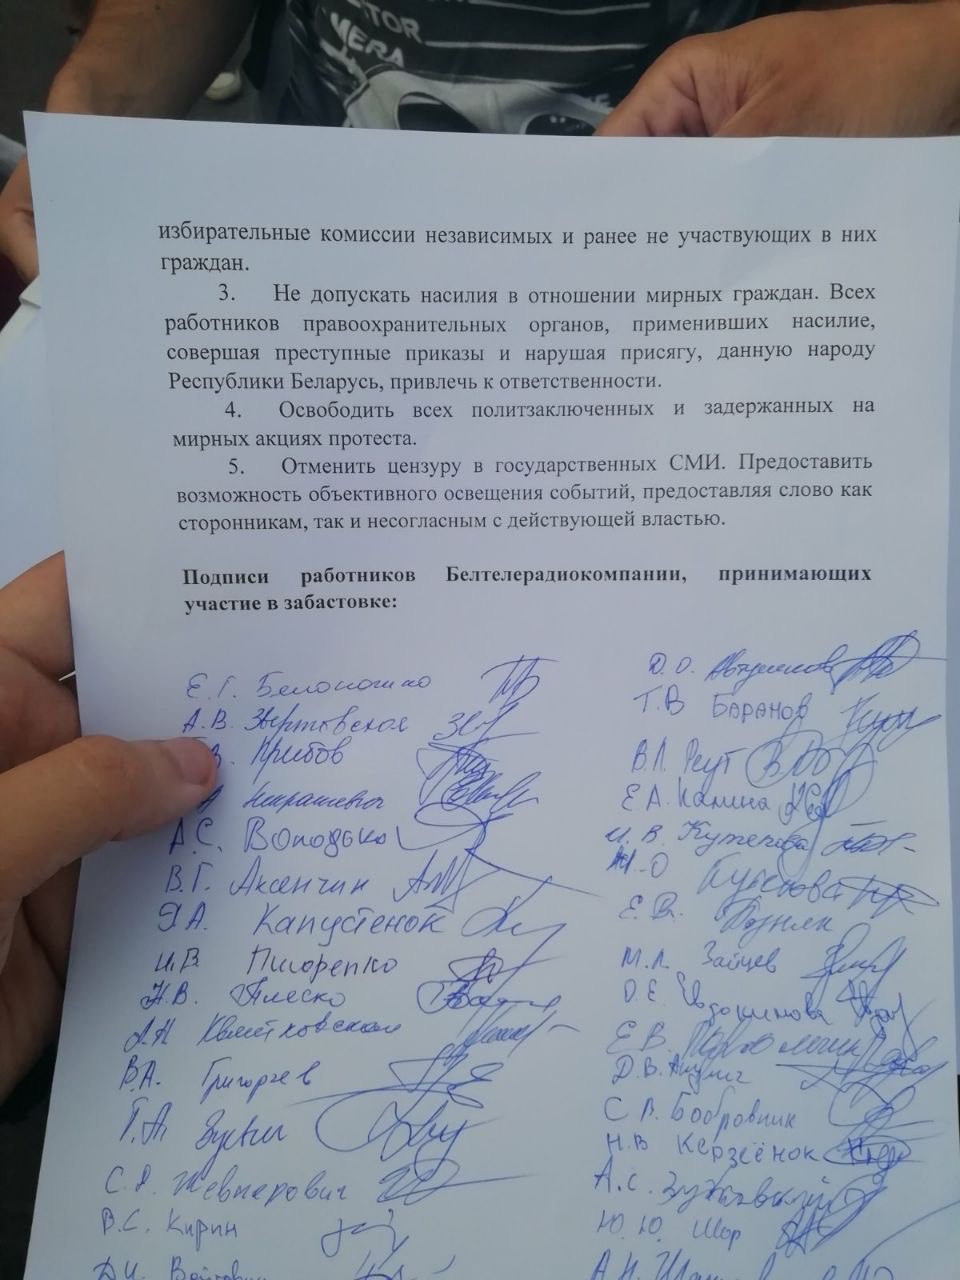 TOR
MERA
избирательные комиссии независимых и ранее не участвующих в них
граждан.
3. Не допускать насилия в отношении мирных граждан. Всех
работников правоохранительных органов, применивших насилие,
совершая преступные приказы и нарушая присягу, данную народу
Республики Беларусь, привлечь к ответственности.
4. Освободить всех политзаключенных и задержанных на
мирных акциях протеста.
5. Отменить цензуру в государственных СМИ. Предоставить
возможность объективного освещения событий, предоставляя слово как
сторонникам, так и несогласным с действующей властью.
Подписи работников Белтелерадиокомпании, принимающих
участие в забастовке:
Е.Г. Белоношко
А.В.
Грибов
А.С. Володько
В.Г. Аксенчик
Я.А. Капустенок
И.В. Пигорепко
Н.В. Плеско
А.Н. Квятковская
В.А. Григорьев
Т.А.
С.Я. Жевнерович
В.С. Кирин
Д.О.
Т.В Баранов
В.Л. Реут
Е.А. Калина
И.В.
Е.В. Позняк
М.Л. Зайцев
О.Е. Евдокимова
Е.В.
Д.В.
С.В. Бобровник
Н.В Керзеёнок
А.С.
Ю.Ю. Шор
А.Н.